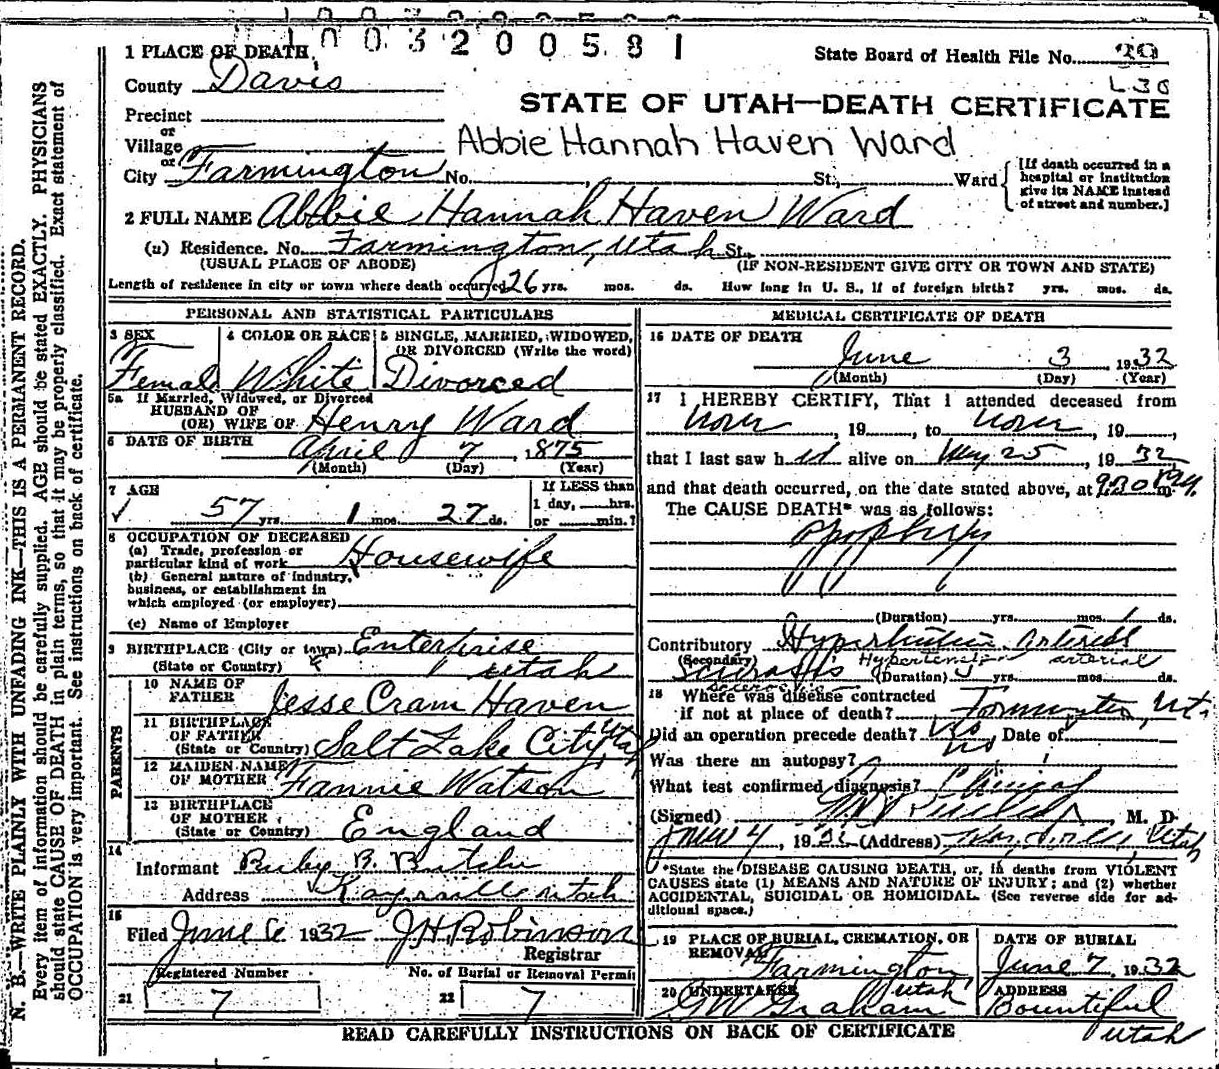 1003200581
1 PLACE OF DEATH
State Board of Health File No. 29
County Davis
L 30
STATE OF UTAH—DEATH CERTIFICATE
Precinct
or
Village
Abbie Hannah Haven Ward
or
City Farmington No. St., Ward
[If death occurred in a
hospital or institution
give its NAME instead
of street and number.]
2 FULL NAME Abbie Hannah Haven Ward
(a) Residence. No. Farmington, Utah St.
(USUAL PLACE OF ABODE)
(IF NON-RESIDENT GIVE CITY OR TOWN AND STATE)
Length of residence in city or town where death occurred 26 yrs. mos. ds. How long in U. S., if of foreign birth? yrs. mos. ds.
PERSONAL AND STATISTICAL PARTICULARS
3 SEX
Female
4 COLOR OR RACE
White
5 SINGLE, MARRIED, WIDOWED,
OR DIVORCED (Write the word)
Divorced
5a If Married, Widowed, or Divorced
HUSBAND OF
(OR) WIFE OF Henry Ward
6 DATE OF BIRTH April 7, 1875
(Month) (Day) (Year)
7 AGE
57 yrs. 1 mos. 27 ds.
If LESS than
1 day, hrs.
or min.?
8 OCCUPATION OF DECEASED
(a) Trade, profession or
particular kind of work Housewife
(b) General nature of industry,
business, or establishment in
which employed (or employer)
(c) Name of Employer
9 BIRTHPLACE (City or town) Enterprise
(State or Country) Utah
PARENTS
10 NAME OF
FATHER Jesse Cram Haven
11 BIRTHPLACE
OF FATHER
(State or Country) Salt Lake City, Utah
12 MAIDEN NAME
OF MOTHER Fannie Watson
13 BIRTHPLACE
OF MOTHER
(State or Country) England
14
Informant Ruby B.
Address Kaysville Utah
15
Filed June 6 1932 J H Robinson
Registrar
Registered Number
21 7
No. of Burial or Removal Permit
22 7
MEDICAL CERTIFICATE OF DEATH
16 DATE OF DEATH
June 3 1932
(Month) (Day) (Year)
17 I HEREBY CERTIFY, That I attended deceased from
, 19 , to , 19 ,
that I last saw h alive on May 25, 1932
and that death occurred, on the date stated above, at 9:30 P.M.
The CAUSE DEATH* was as follows:
(Duration) yrs. mos. 1 ds.
Contributory Hypertension arterial
(Secondary) Hypertension arterial
sclerosis (Duration) yrs. mos. ds.
18 Where was disease contracted
if not at place of death? Farmington, Ut.
Did an operation precede death? No Date of
no
Was there an autopsy?
What test confirmed diagnosis? Clinical
(Signed) , M. D.
June 4, 1932 (Address) , Utah
*State the DISEASE CAUSING DEATH, or, in deaths from VIOLENT
CAUSES state (1) MEANS AND NATURE OF INJURY; and (2) whether
ACCIDENTAL, SUICIDAL OR HOMICIDAL. (See reverse side for ad-
ditional space.)
19 PLACE OF BURIAL, CREMATION, OR
REMOVAL
Farmington
Utah
DATE OF BURIAL
June 7 1932
20 UNDERTAKER
GW Graham
ADDRESS
Bountiful
Utah
READ CAREFULLY INSTRUCTIONS ON BACK OF CERTIFICATE
N. B.—WRITE PLAINLY WITH UNFADING INK—THIS IS A PERMANENT RECORD.
Every item of information should be carefully supplied. AGE should be stated EXACTLY. PHYSICIANS
should state CAUSE OF DEATH in plain terms, so that it may be properly classified. Exact statement of
OCCUPATION is very important. See instructions on back of certificate.